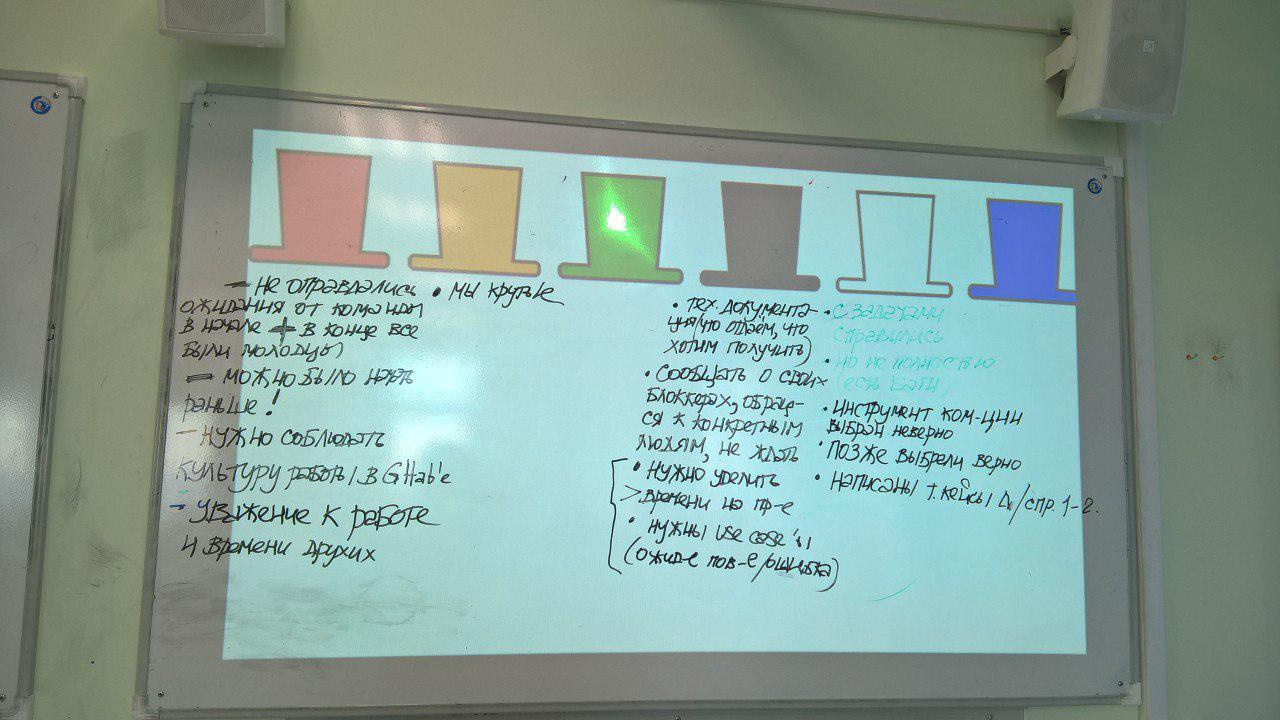 — НЕ ОПРАВДАЛИСЬ
ОЖИДАНИЯ ОТ КОМАНДЫ
В НАЧАЛЕ + В КОНЦЕ ВСЕ
БЫЛИ МОЛОДЦЫ
— МОЖНО БЫЛО НАЧАТЬ
раньше!
— НУЖНО СОБЛЮДАТЬ
КУЛЬТУРУ работы в GHab'e
- УВАЖЕНИЕ К РАБОТЕ
И Времени других
• МЫ КРУТЫЕ
• тех. документа-
ция (что отдаём, что
хотим получить)
• СООБЩАТЬ О СВОИХ
Блоккерах, обращ-
ся к конкретным
людям, не ждать
• НУЖНО УДЕЛИТЬ
> времени на пр-е
• нужны use case'ы
(ожид-е пов-е/ошибка)
• С ЗАДАЧАМИ
СПРАВИЛИСЬ
• НО НЕ ПОЛНОСТЬЮ
(есть БАГИ)
• ИНСТРУМЕНТ КОМ-ЦИИ
ВЫБРАН неверно
• ПОЗЖЕ ВЫБРАЛИ ВЕРНО
• НАПИСАНЫ Т.КЕЙСЫ /спр. 1-2.